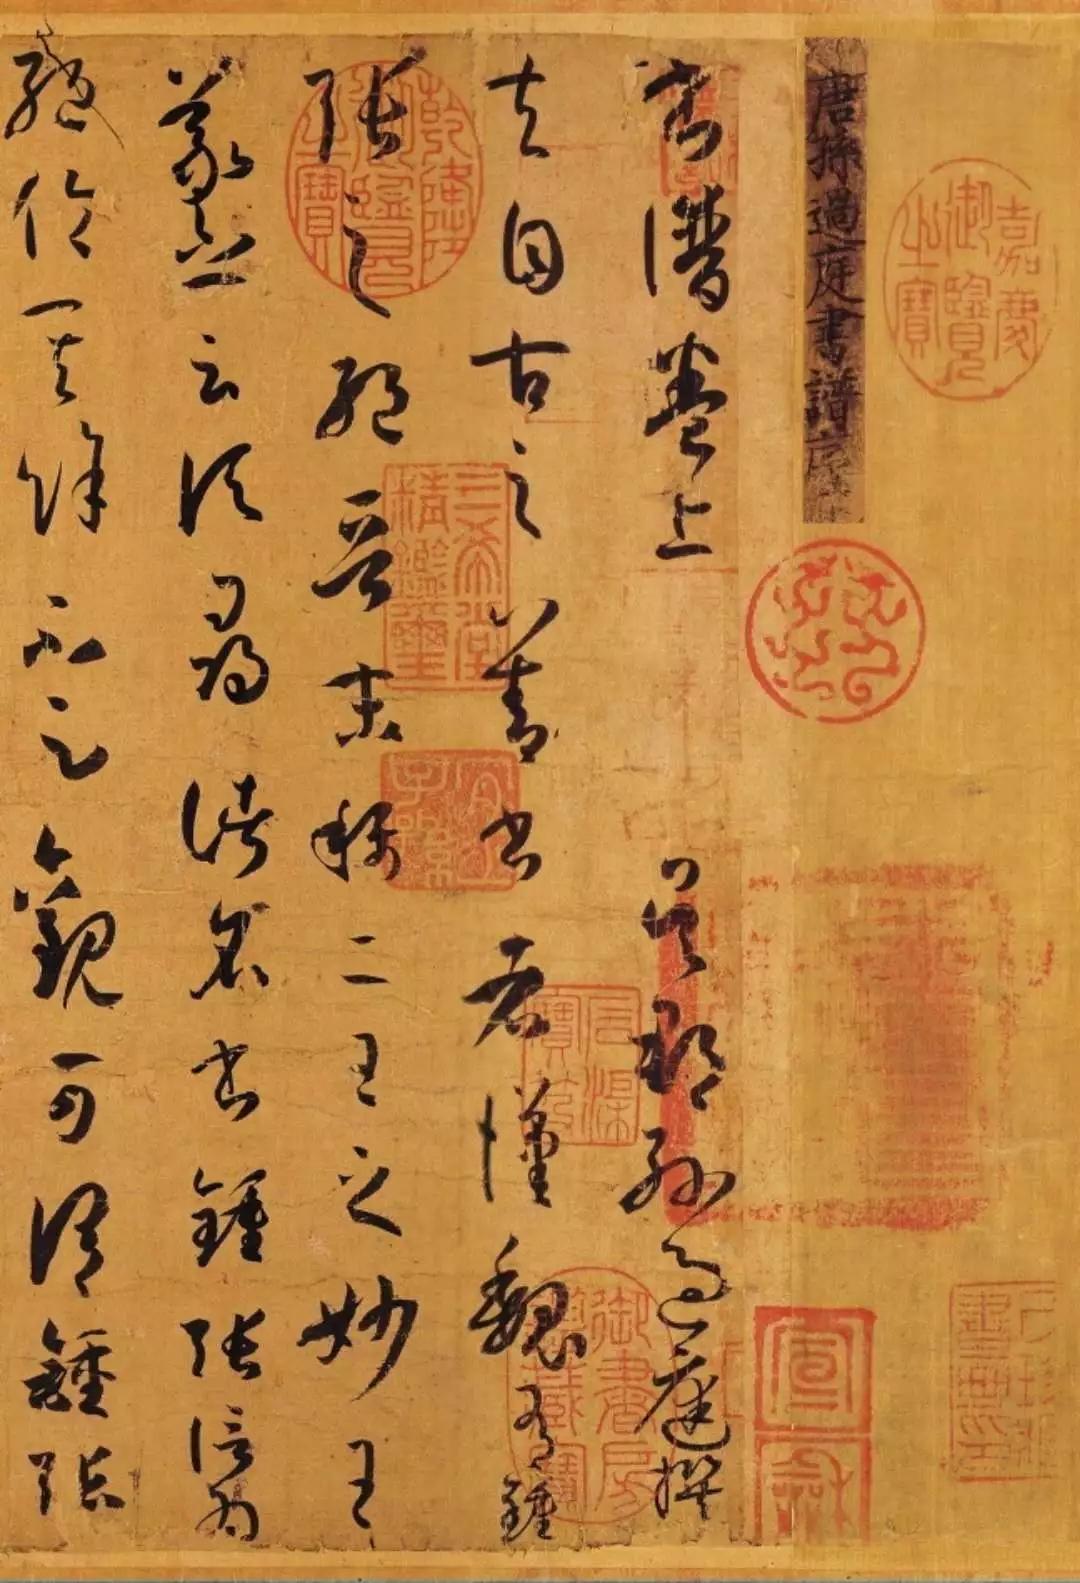 嘉慶御覽之寶
唐孫過庭書譜序
書譜卷上 吳郡孫過庭撰
夫自古之善書者漢魏有鍾
張之絕晉末稱二王之妙王
羲之云頃尋諸名書鍾張信為
絕倫其餘不足觀可謂鍾張
乾隆御覽之寶
三希堂精鑑璽
宜子孫
御書房鑒藏寶
宣和